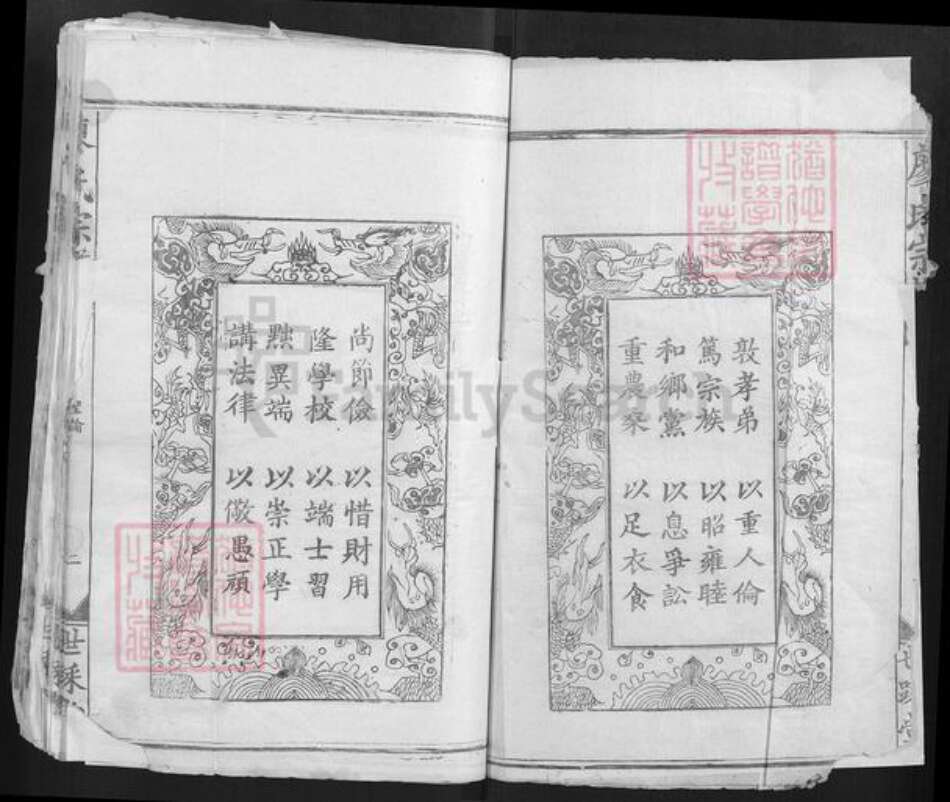 敦孝弟 以重人倫
篤宗族 以昭雍睦
和鄉黨 以息爭訟
重農桑 以足衣食
尚節儉 以惜財用
隆學校 以端士習
黜異端 以崇正學
講法律 以儆愚頑
聖諭
二
世綵
FamilySearch